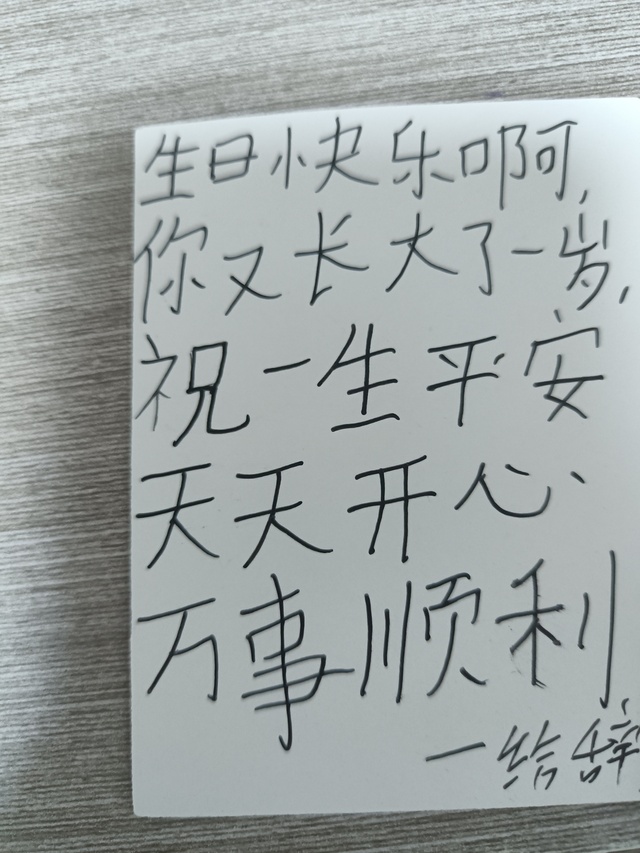 生日快乐啊,
你又长大了一岁,
祝一生平安
天天开心
万事顺利
一给辞